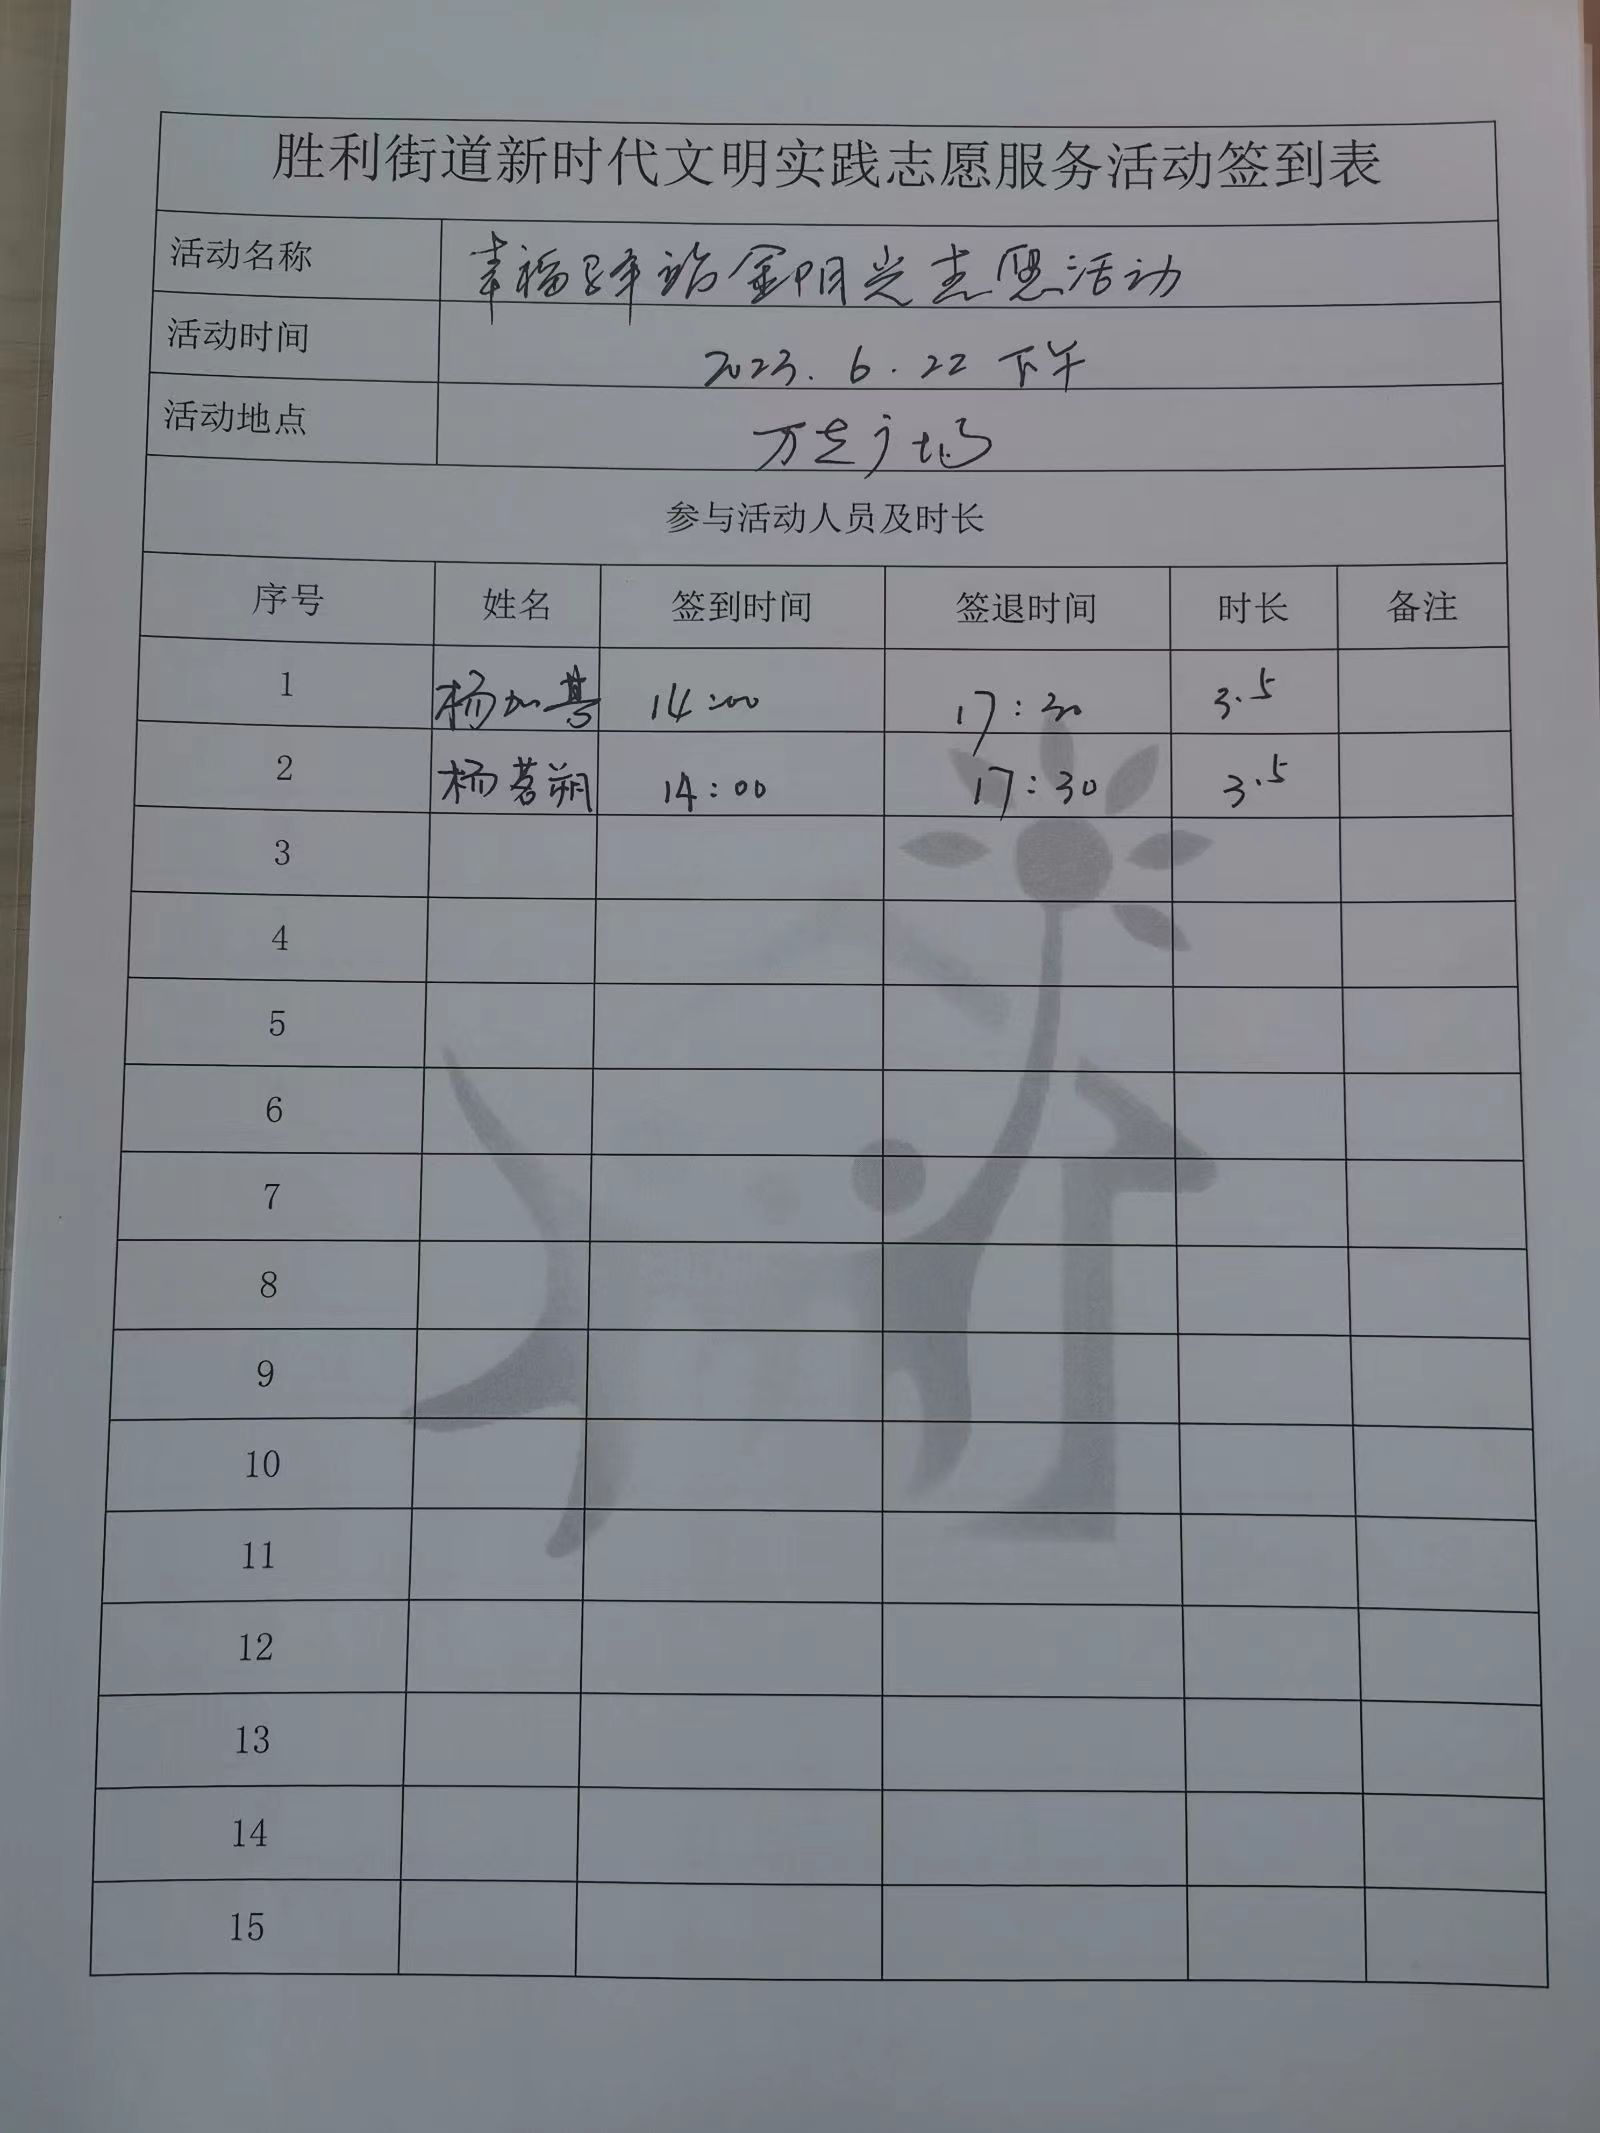 胜利街道新时代文明实践志愿服务活动签到表
活动名称 幸福驿站金阳光志愿活动
活动时间 2023.6.22 下午
活动地点 万达广场
参与活动人员及时长
序号 姓名 签到时间 签退时间 时长 备注
1 杨加 14:00 17:30 3.5
2 杨茗朔 14:00 17:30 3.5
3
4
5
6
7
8
9
10
11
12
13
14
15